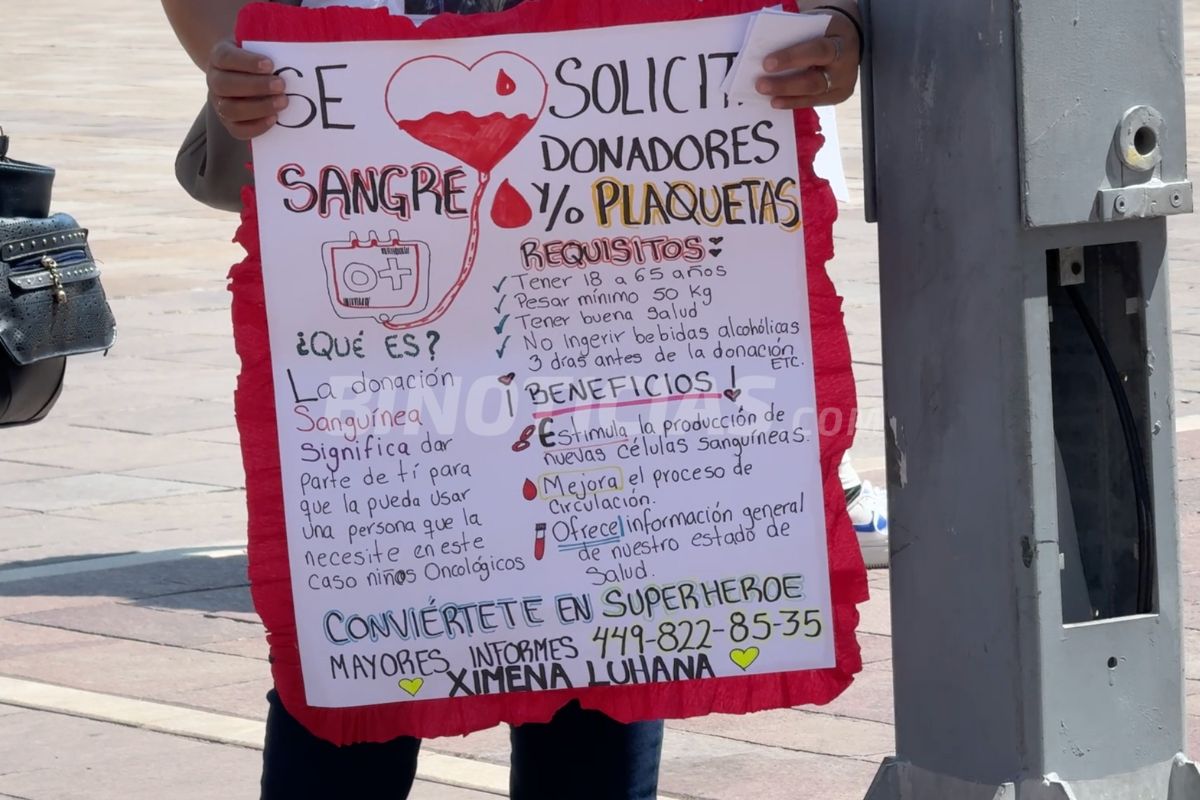 SE SOLICIT
DONADORES
SANGRE Y/o PLAQUETAS
O+
REQUISITOS:
✓ Tener 18 a 65 años
✓ Pesar mínimo 50 Kg
✓ Tener buena salud
✓ No ingerir bebidas alcohólicas
3 días antes de la donación
ETC.
¿QUÉ ES?
La donación
Sanguínea
Significa dar
parte de tí para
que la pueda usar
una persona que la
necesite en este
caso niños Oncológicos
¡BENEFICIOS!
Estimula la producción de
nuevas células sanguíneas.
Mejora el proceso de
circulación.
Ofrece información general
de nuestro estado de
Salud.
CONVIÉRTETE EN SUPERHEROE
MAYORES INFORMES 449-822-85-35
XIMENA LUHANA
BINOTICIAS.com